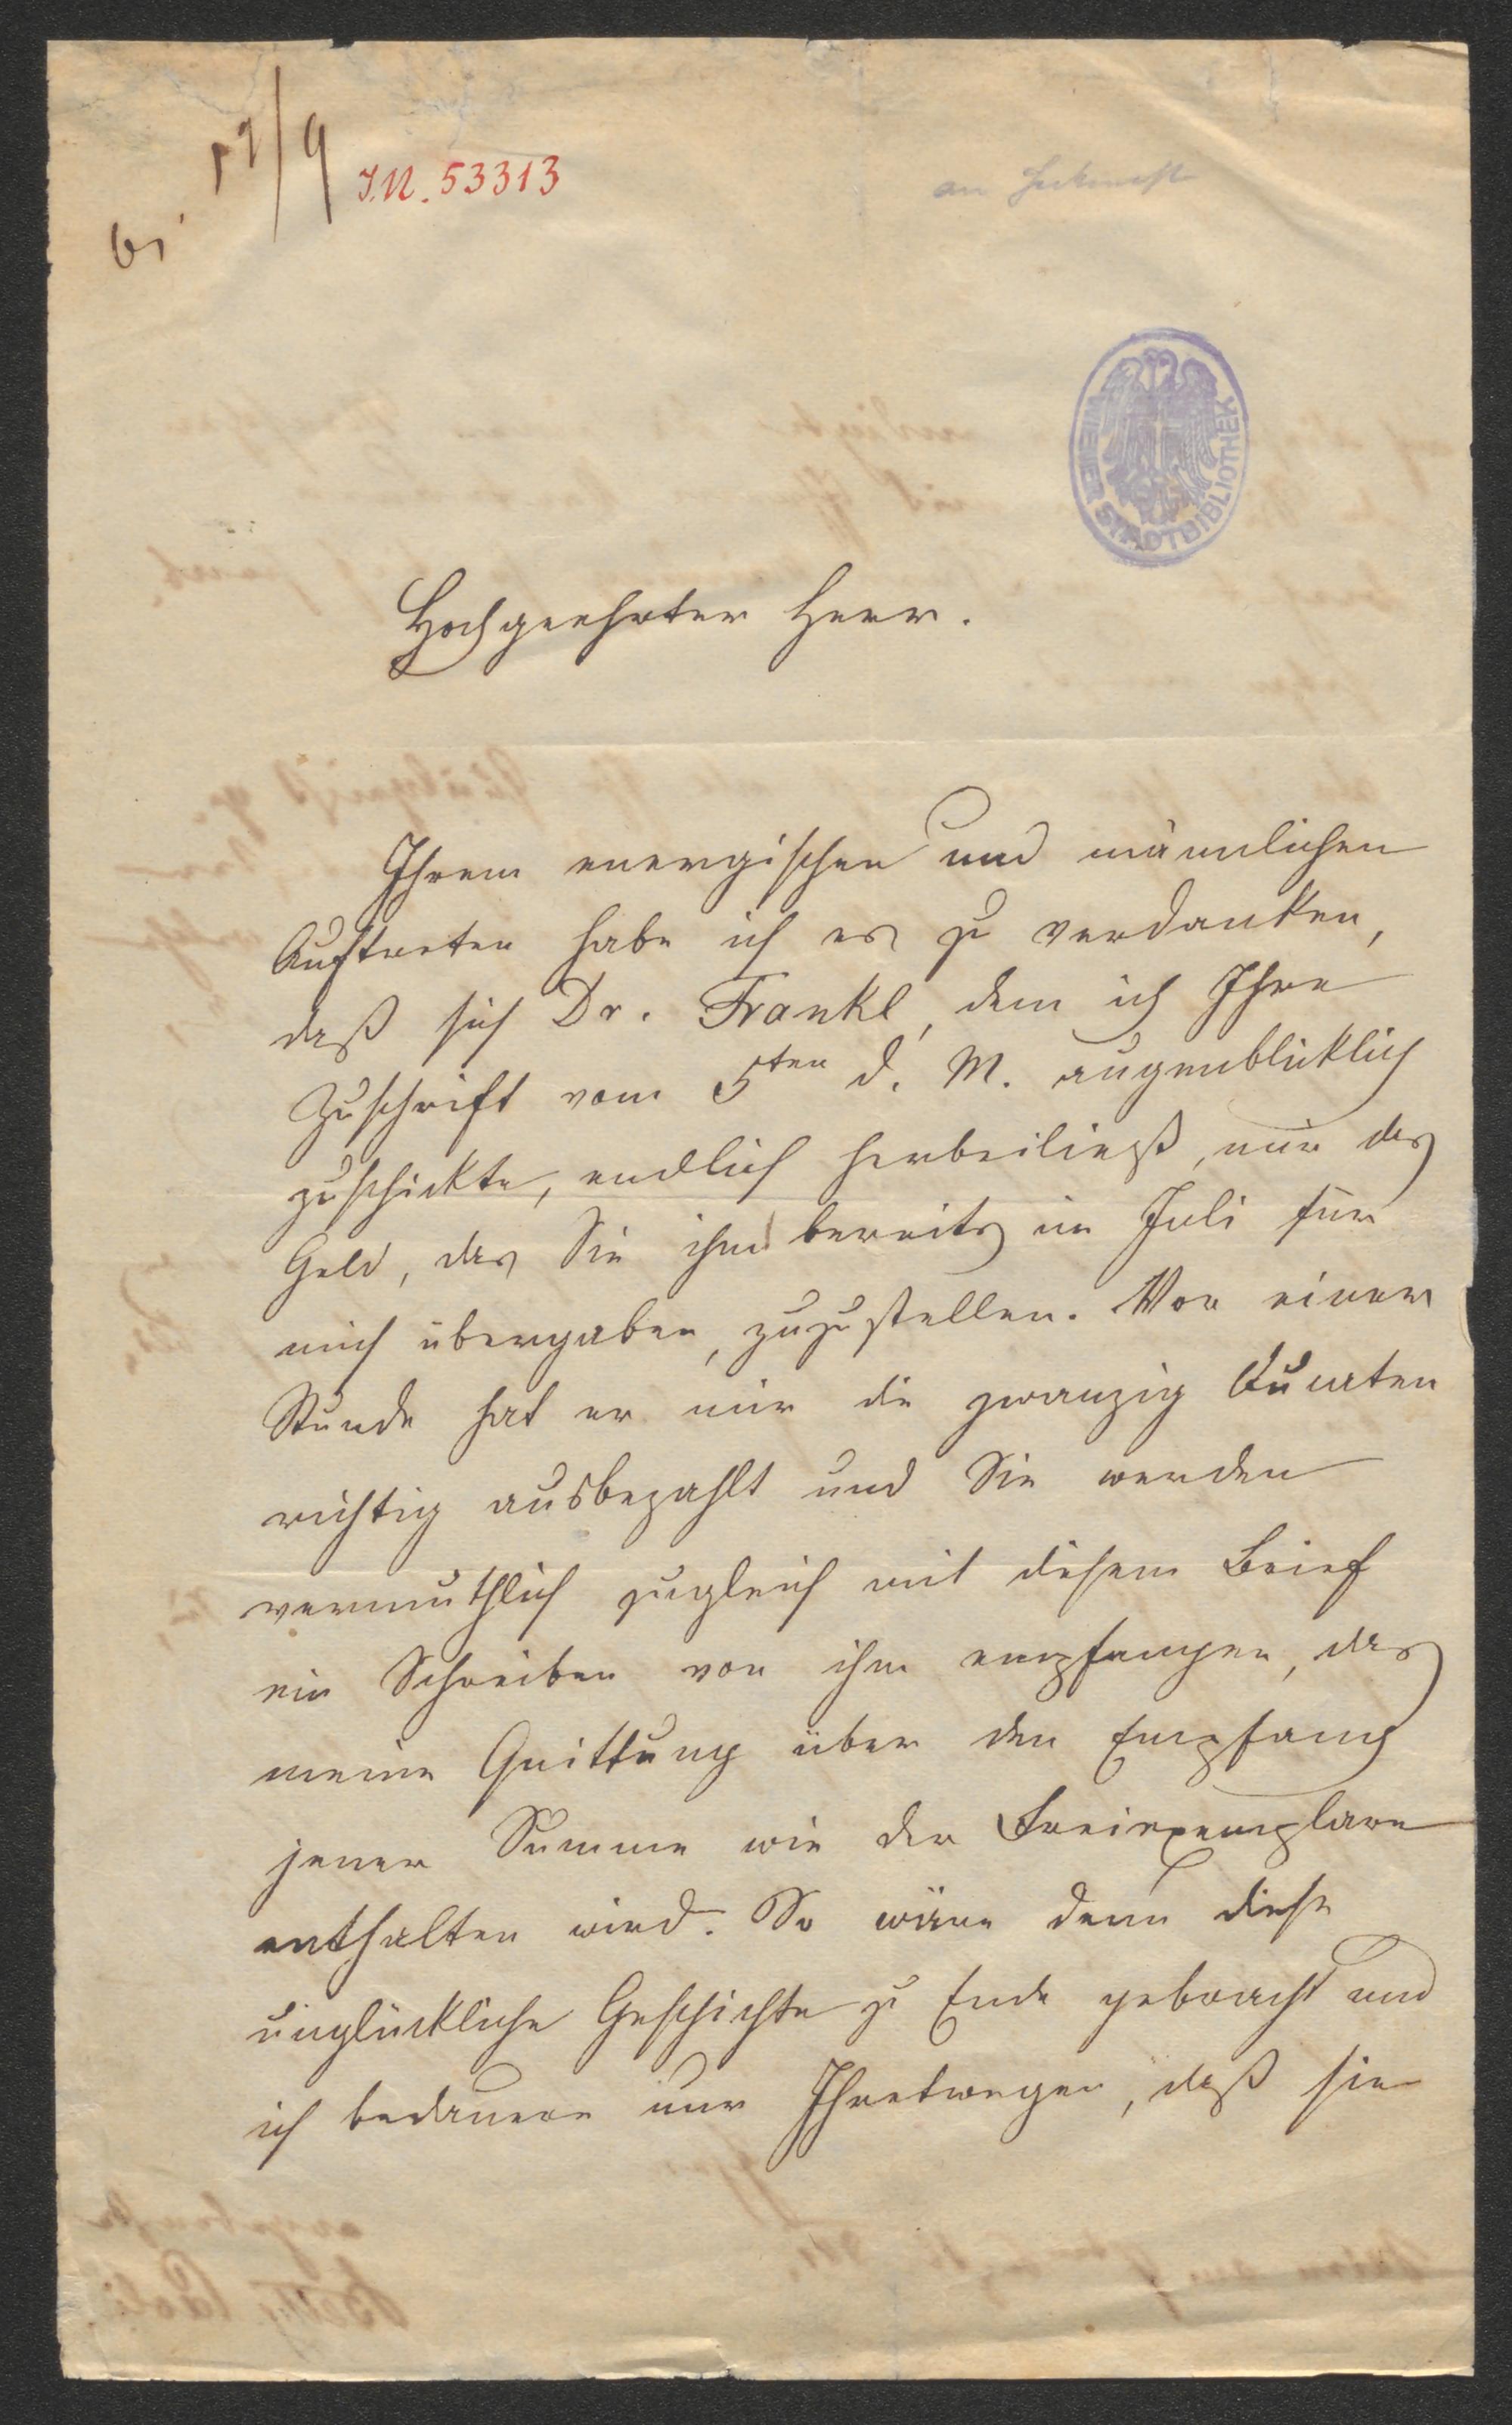 19/9
I.N. 53313
an Heckenast
WIENER STADTBIBLIOTHEK
Hochgeehrter Herr.
Ihrem energischen und männlichen
Auftreten habe ich es zu verdanken,
daß sich Dr. Frankl, dem ich Ihre
Zuschrift vom 5ten d. M. augenblicklich
zuschickte, endlich herbeiließ, mir das
Geld, das Sie ihm bereits im Juli für
mich übergaben, zuzustellen. Vor einer
Stunde hat er mir die zwanzig Ducaten
richtig ausbezahlt und Sie werden
vermuthlich zugleich mit diesem Brief
ein Schreiben von ihm empfangen, das
meine Quittung über den Empfang
jener Summe wie der Freiexemplare
enthalten wird. So wäre denn diese
unglückliche Geschichte zu Ende gebracht und
ich bedauere nur Ihretwegen, daß sie